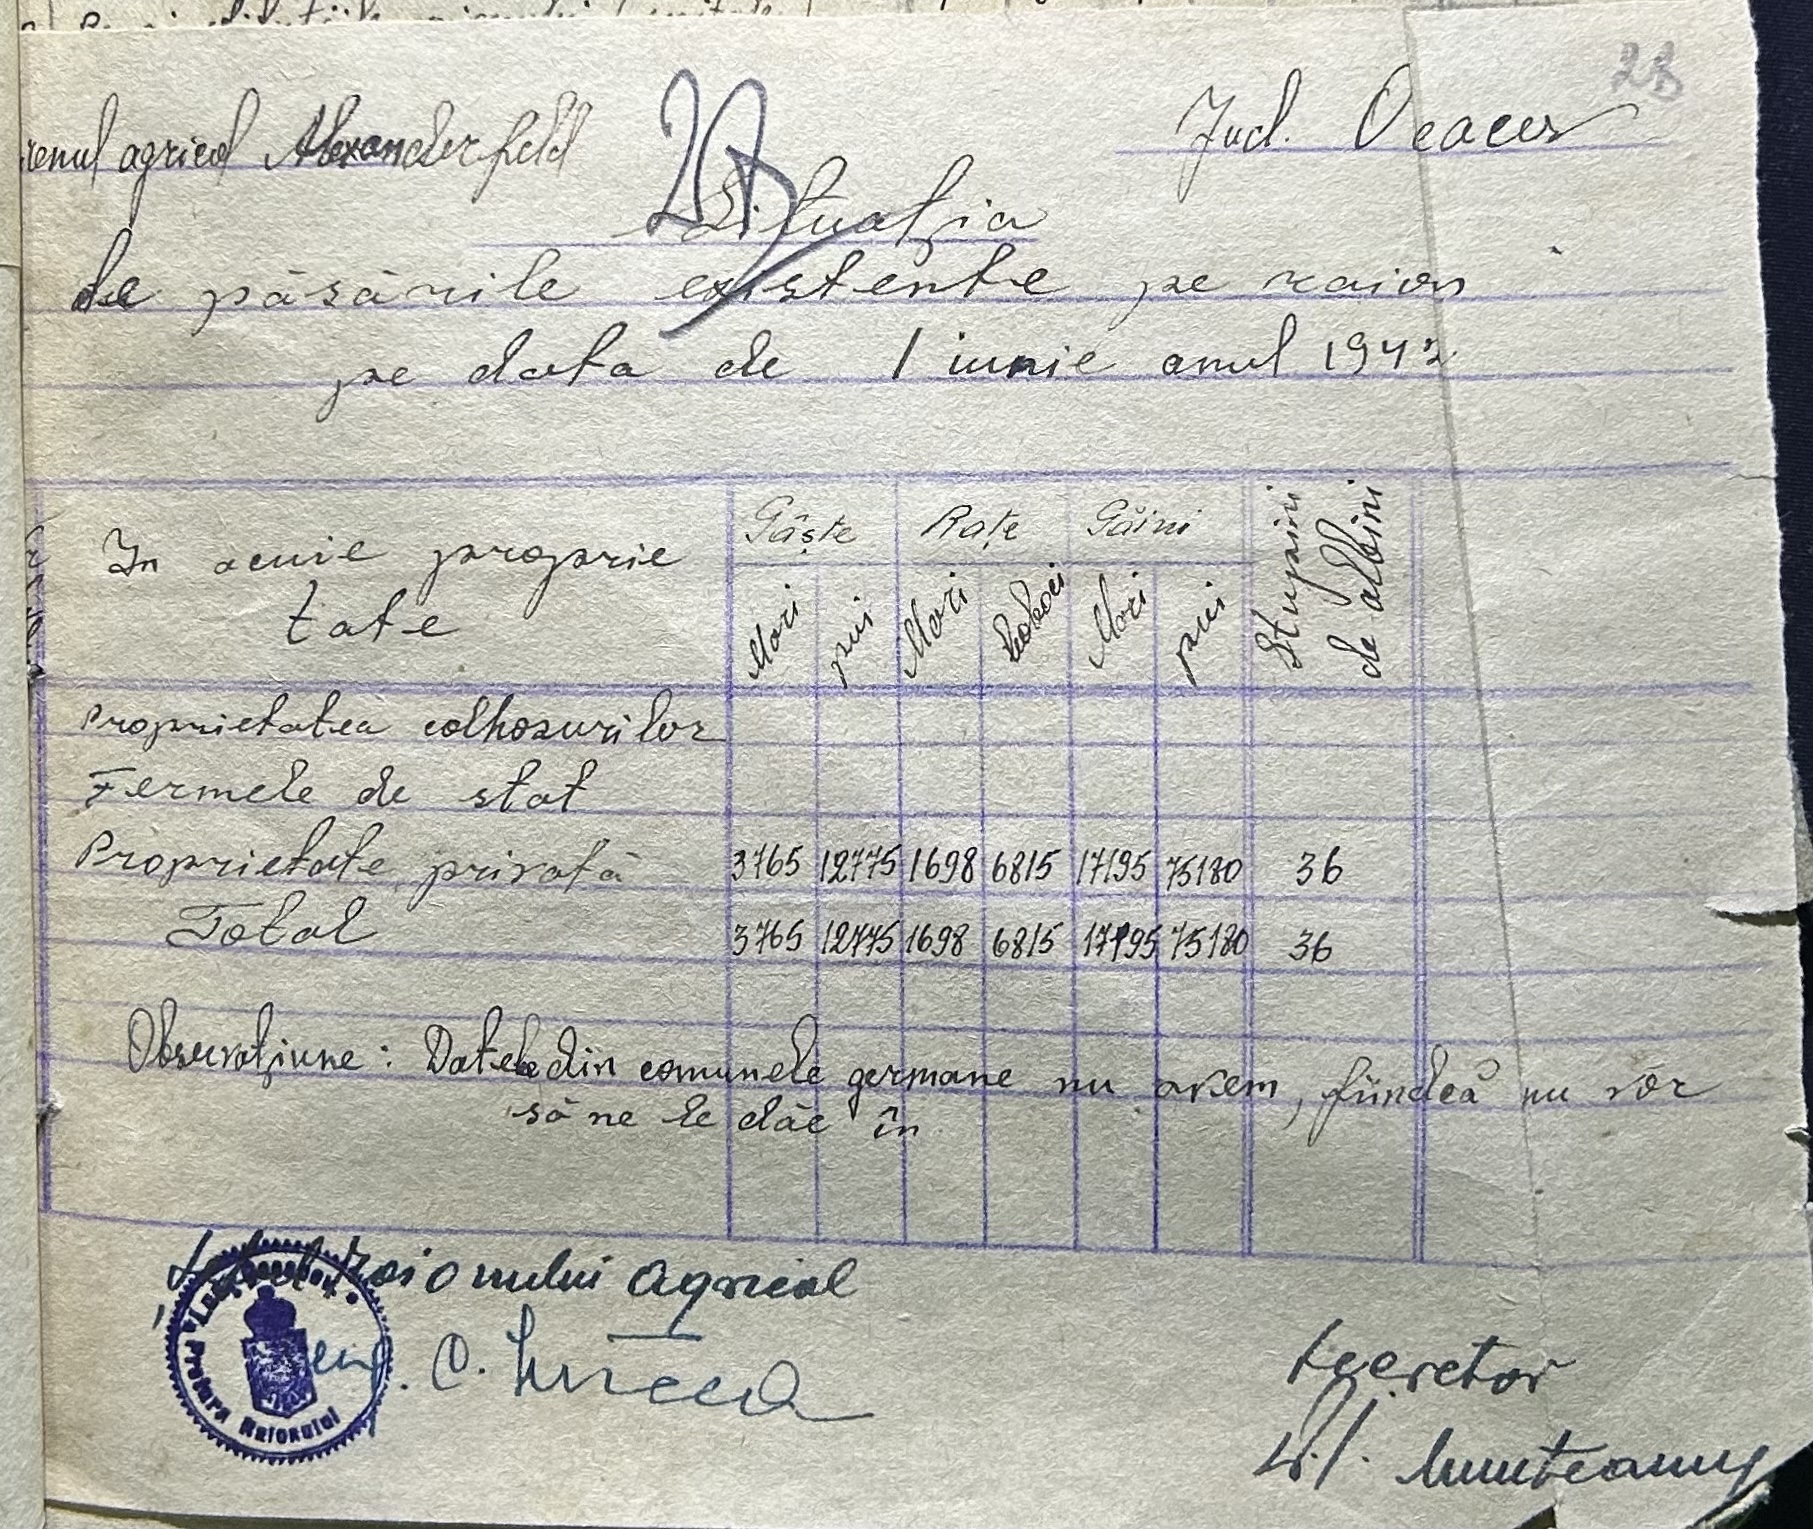 28
agricol Alexanderfeld
28
Jud. Oceacov
Situația
de păsările existente pe raion
pe data de 1 iunie anul 1942
In acuie proprie
tate
Gâște Rațe Găini Stupini de albini
Mari pui Mari Bobocei Mari pui
Proprietatea colhozurilor
Fermele de stat
Proprietate privată 3765 12775 1698 6815 17195 75180 36
Total 3765 12775 1698 6815 17195 75180 36
Observațiune: Datele din comunele germane nu avem, fiindcă nu vor
să ne le dăe în
Șeful Raionului agricol
ing. C. Mircea
Pretura Raionului
Secretar
Munteanu